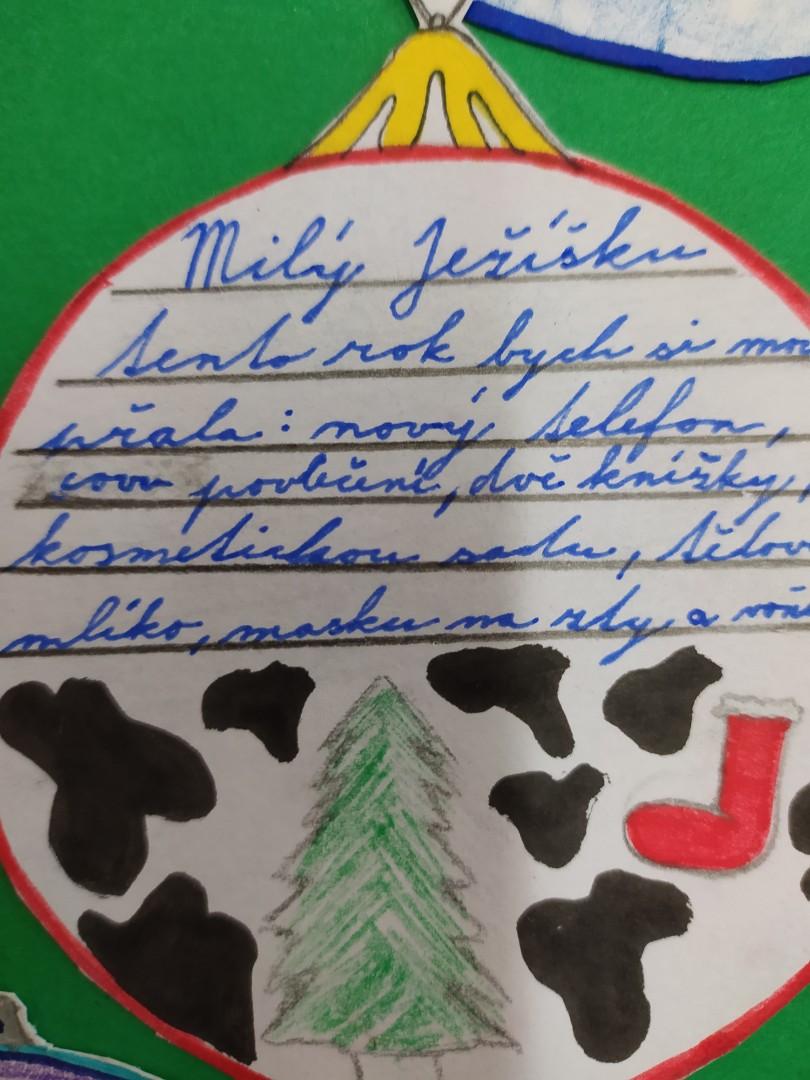 Milý Ježíšku
tento rok bych si moc
přála: nový telefon,
povlečení, dvě knížky,
kosmetickou sadu, tělov
mlíko, masku na rty a